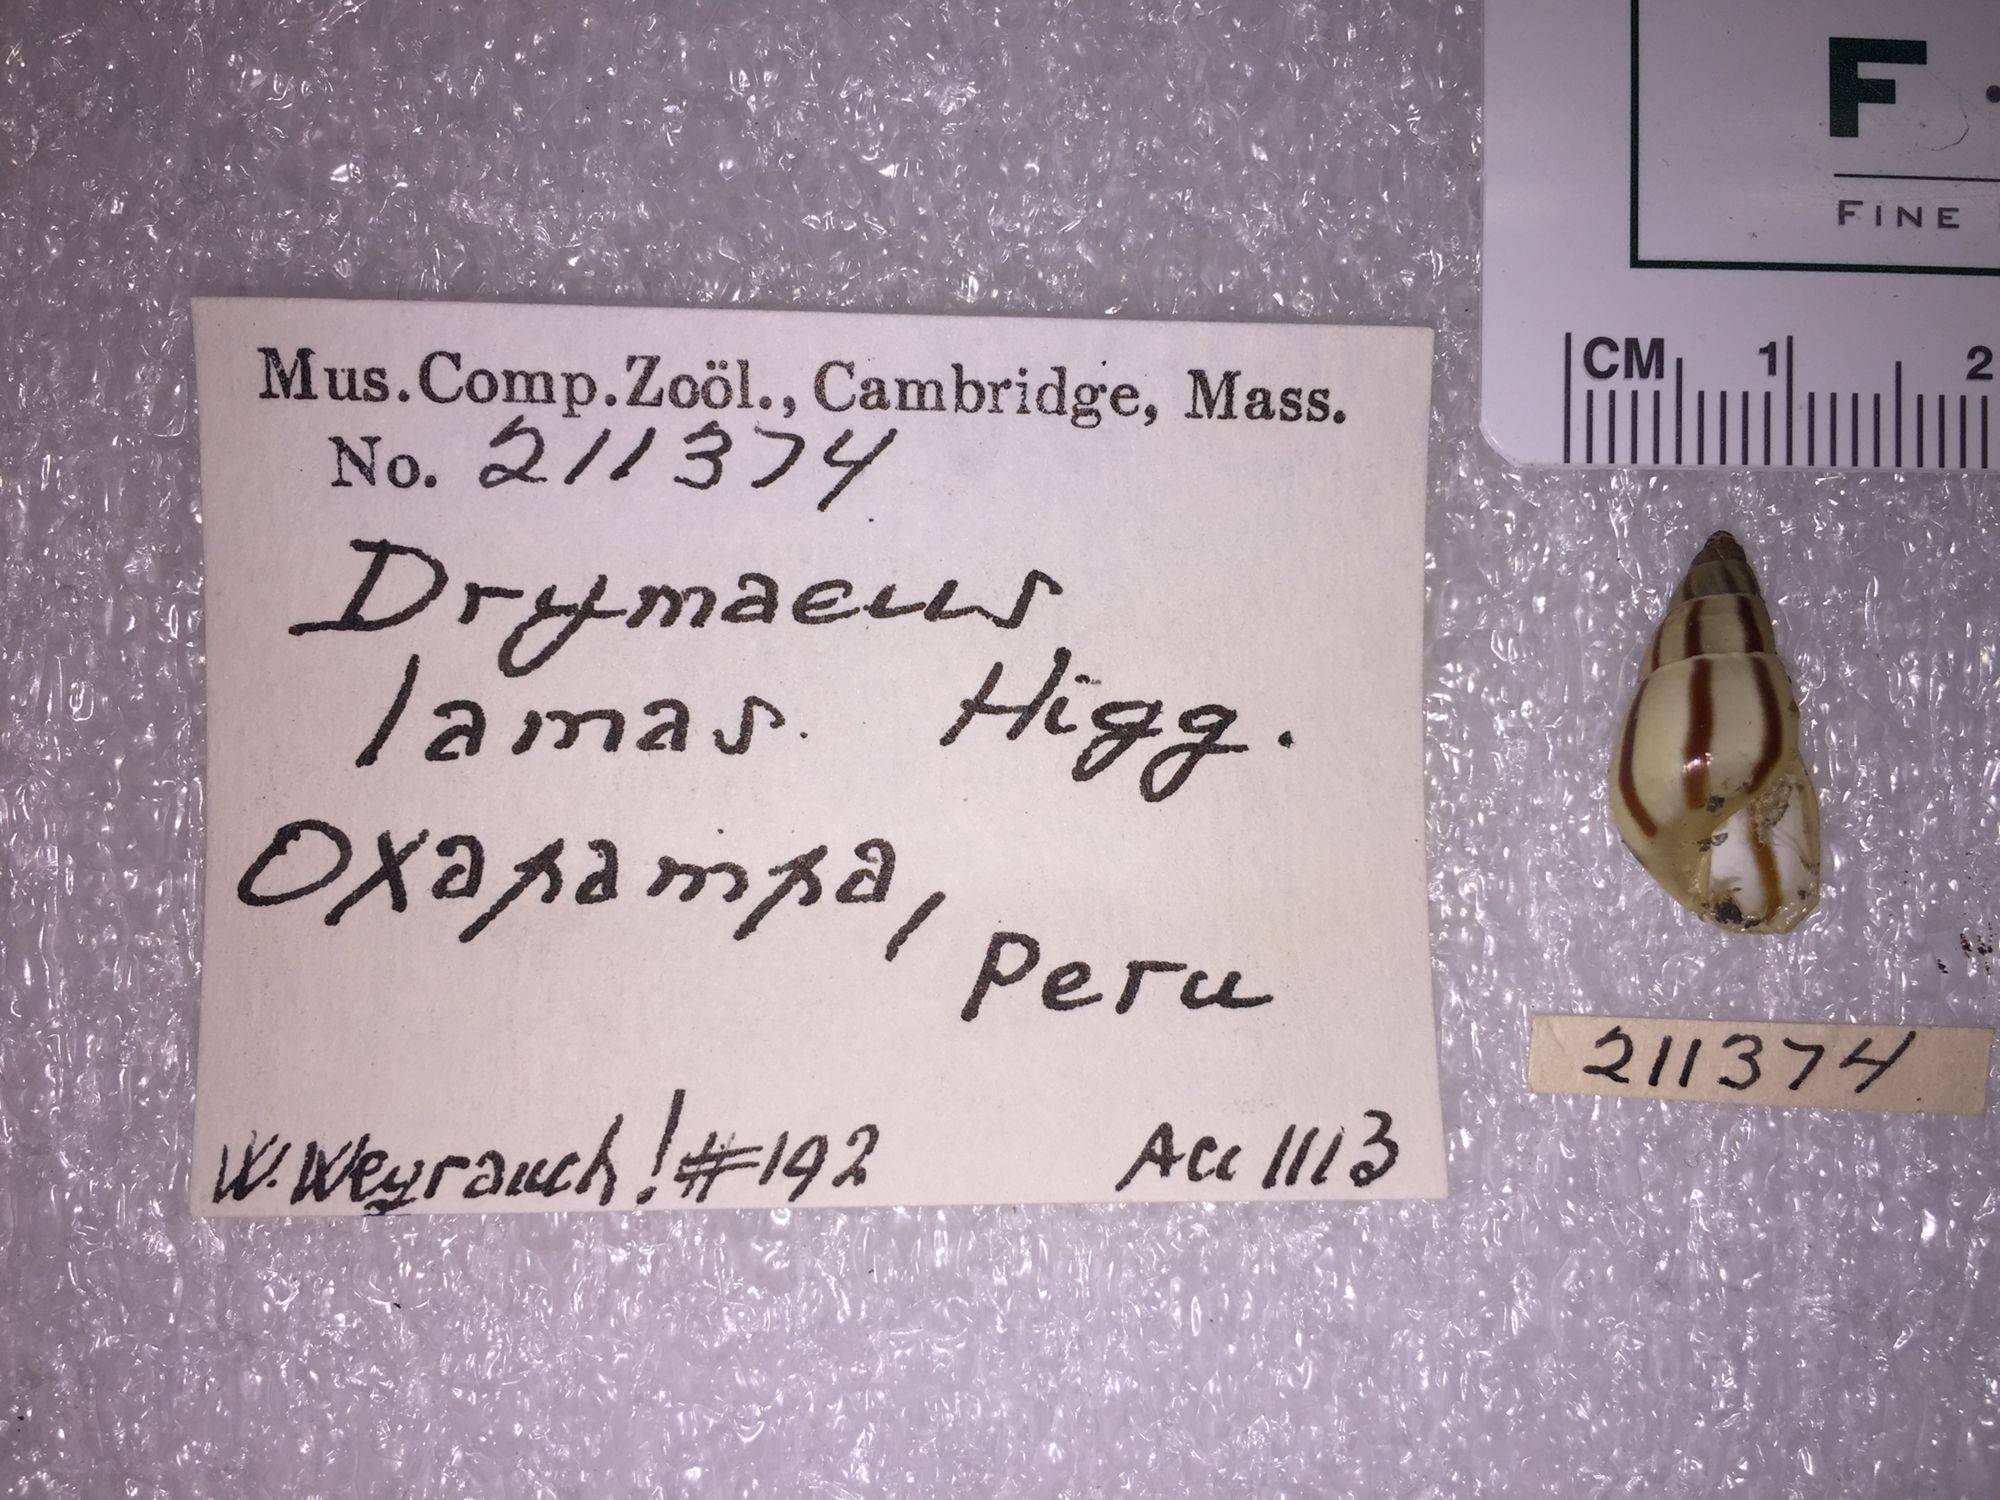 Mus. Comp. Zoöl., Cambridge, Mass.
No. 211374
Drymaeus
lamas. Higg.
Oxapampa,
Peru
W. Weyrauch! #192
Acc 1113
F
FINE
CM 1 2
211374